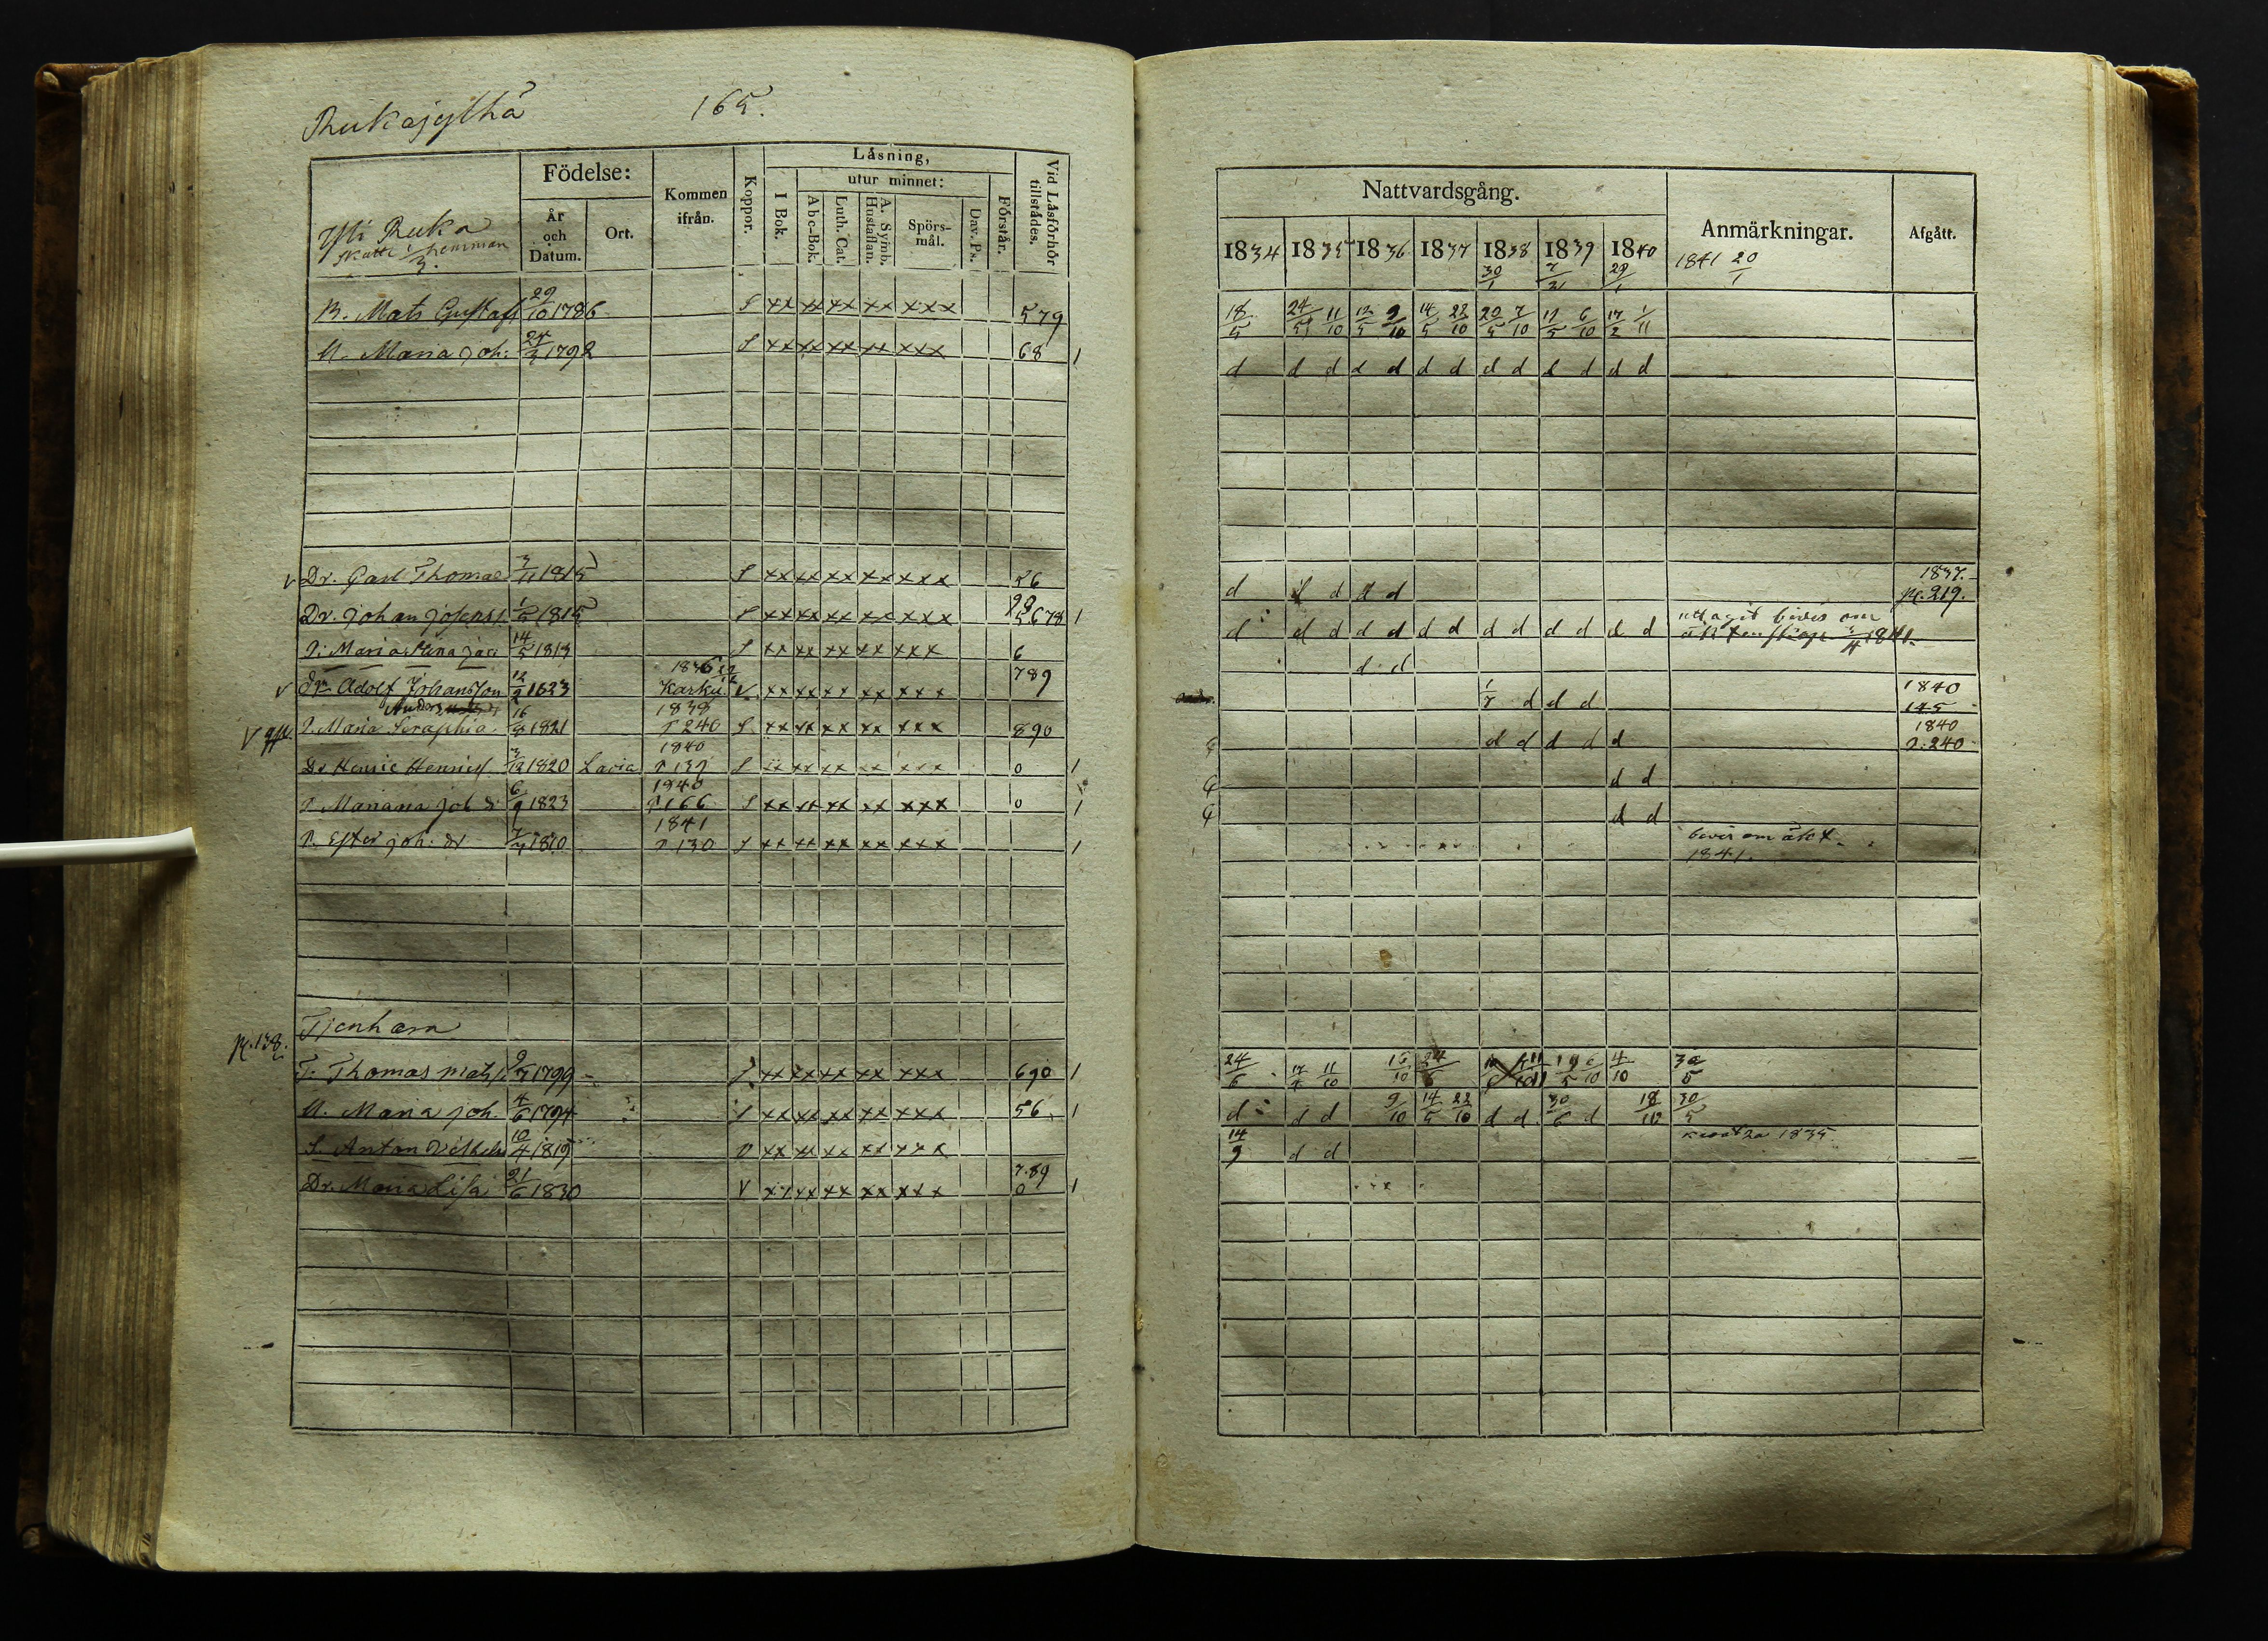 Rukajylhä 165.
Födelse:
Kommen ifrån.
Koppor.
Läsning,
I Bok.
utur minnet:
Abc-Bok.
Luth. Cat.
A. Symb. Hustaflan.
Spörs-mål.
Dav. Ps.
Förstår.
Vid Läsförhör tillstådes.
År och Datum.
Ort.
Yli Ruka
skatte 1/3 hemman
B. Mats Gustafs 29/10 1786 S xx xx xx xx xxx 579
U. Maria Joh: 24/3 1792 S xx xx xx xx xxx 68 1
v Dr. Carl Thomas 3/11 1815 S xx xx xx xx xxx 56
Dr. Johan Josephs. 1815 S xx xx xx xx xxx 90 5678 1
P. Maria Stina 14/5 1813 S xx xx xx xx xxx 6
v Dr. Adolf Johansson 12/9 1823 1836 Karku v. xx xx xx xx xxx 789
P. Maria Seraphia 16/8 1821 1838 p 240 S xx xx xx xx xxx 890
Dr Henric Henrics. 3/12 1820 Lavia 1840 p 139 S xx xx xx xx xxx 0 1
P. Mariana Joh d. 6/9 1823 1840 p 166 S xx xx xx xx xxx 0 1
P. Ester Joh. dr 1810 1841 p 130 S xx xx xx xx xxx 1
p. 138.
T. Thomas Mats. 1799 xx xx xx xx xxx 690 1
U. Maria Joh. 4/6 1794 S xx xx xx xx xxx 56 1
S. Anton Vilhelm 10/4 1819 v xx xx xx xx xxx
Dr. Maria Lisa 21/6 1830 v xx xx xx xx xxx 789 0 1
Nattvardsgång.
Anmärkningar.
Afgått.
1834 1835 1836 1837 1838 1839 1840 1841 20/1
30/1 7/21 29/1
18/5 24/5 11/10 12/5 9/10 14/5 22/10 20/5 7/10 12/5 6/10 17/2 1/11
d d d d d d d d d d d d d
d d d d d 1837. p. 219.
d d d d d d d d d d d d d uttagit bevis om
1841.
d d
1/7 d d d 1840 145
d d d d d 1840 p. 240
d d
d d
bevis om äkt.
1841.
24/6 17/4 11/10 16/10 24/6 4/10 30/5
d d d 9/10 14/5 22/10 d d 30/6 d 18/10 30/5
14/9 d d 1835